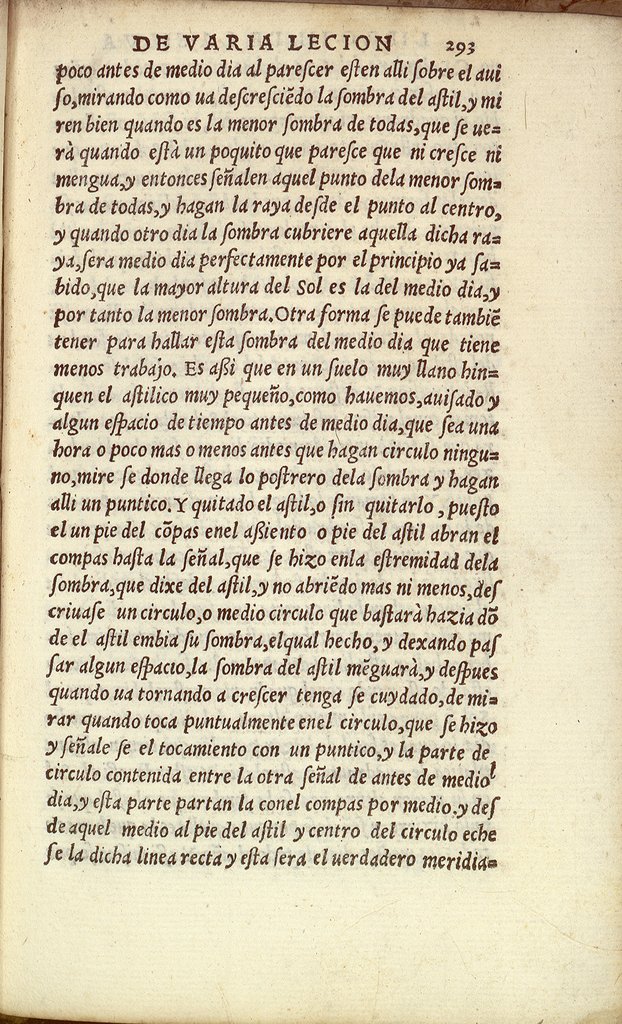 DE VARIA LECION 293
poco antes de medio dia al parescer esten alli sobre el aui
so,mirando como ua descresciẽdo la sombra del astil,y mi
ren bien quando es la menor sombra de todas,que se ue=
rà quando està un poquito que paresce que ni cresce ni
mengua,y entonces señalen aquel punto dela menor som=
bra de todas,y hagan la raya desde el punto al centro,
y quando otro dia la sombra cubriere aquella dicha ra=
ya,sera medio dia perfectamente por el principio ya sa=
bido,que la mayor altura del Sol es la del medio dia,y
por tanto la menor sombra.Otra forma se puede tambiẽ
tener para hallar esta sombra del medio dia que tiene
menos trabajo. Es assi que en un suelo muy llano hin=
quen el astilico muy pequeño,como hauemos,auisado y
algun espacio de tiempo antes de medio dia,que sea una
hora o poco mas o menos antes que hagan circulo ningu=
no,mire se donde llega lo postrero dela sombra y hagan
alli un puntico.Y quitado el astil,o sin quitarlo, puesto
el un pie del cõpas enel assiento o pie del astil abran el
compas hasta la señal,que se hizo enla estremidad dela
sombra,que dixe del astil,y no abriẽdo mas ni menos,des
criuase un circulo,o medio circulo que bastarà hazia dõ
de el astil embia su sombra,elqual hecho, y dexando pas
sar algun espacio,la sombra del astil mẽguarà,y despues
quando ua tornando a crescer tenga se cuydado,de mi=
rar quando toca puntualmente enel circulo,que se hizo
y señale se el tocamiento con un puntico,y la parte de
circulo contenida entre la otra señal de antes de medio
dia,y esta parte partan la conel compas por medio,y des
de aquel medio al pie del astil y centro del circulo eche
se la dicha linea recta y esta sera el uerdadero meridia=